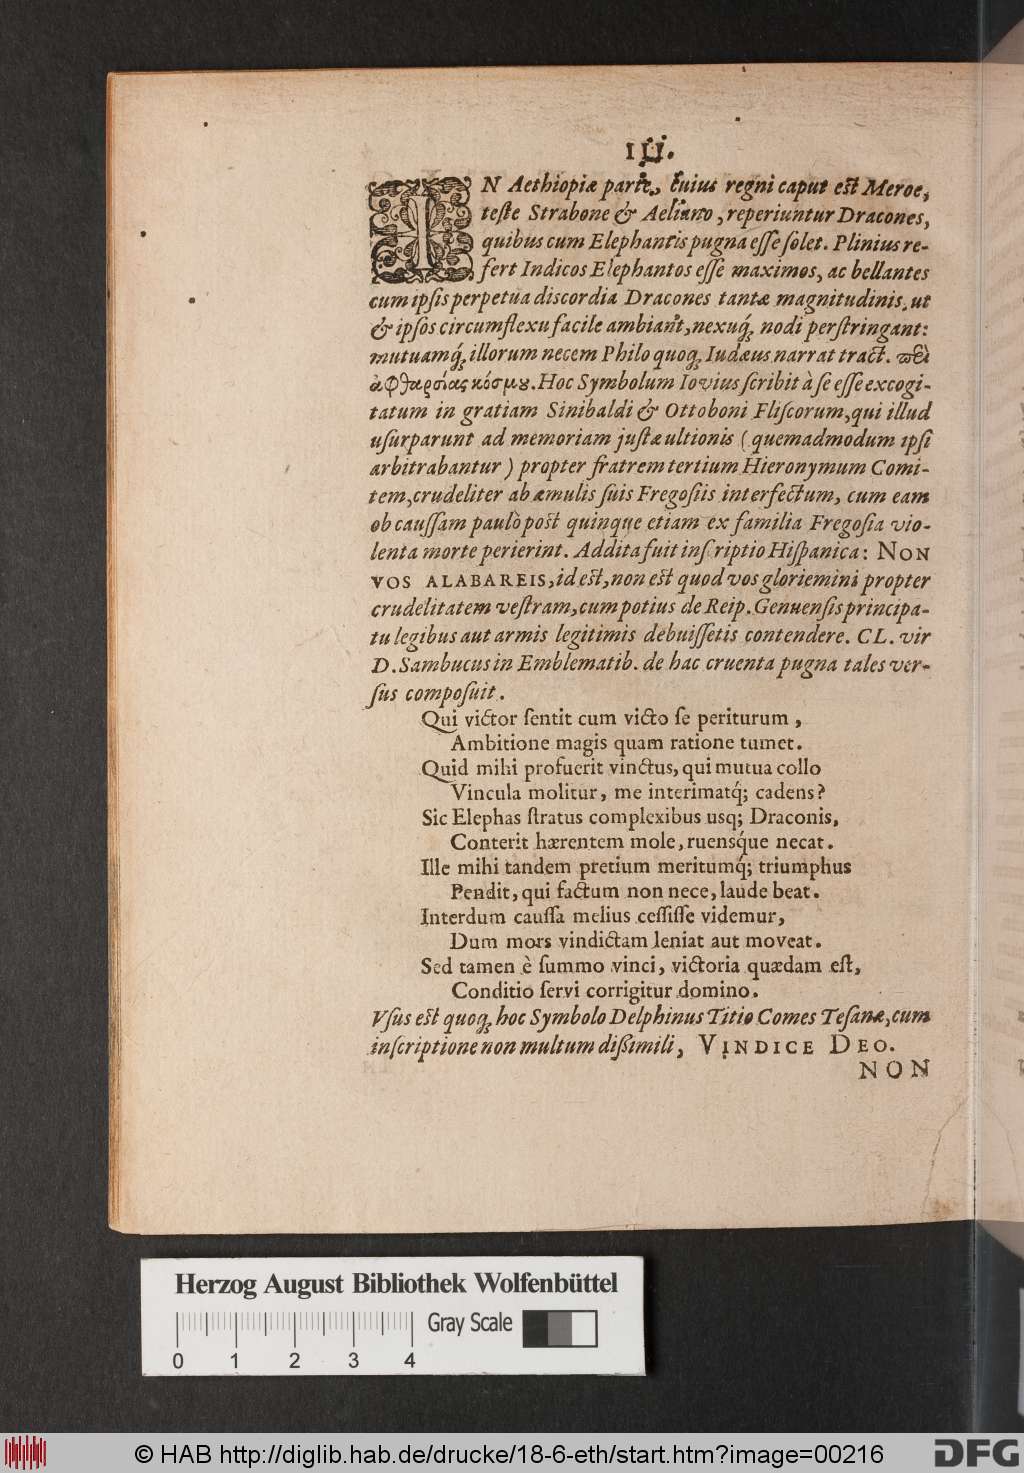 III.
IN Aethiopiæ parte, cuius regni caput est Meroe,
teste Strabone & Aeliano, reperiuntur Dracones,
quibus cum Elephantis pugna esse solet. Plinius re-
fert Indicos Elephantos esse maximos, ac bellantes
cum ipsis perpetua discordia Dracones tantæ magnitudinis, ut
& ipsos circumflexu facile ambiant, nexuq́; nodi perstringant:
mutuamq́; illorum necem Philo quoq; Iudæus narrat tract. περὶ
ἀφθαρσίας κόσμου. Hoc Symbolum Iovius scribit à se esse excogi-
tatum in gratiam Sinibaldi & Ottoboni Fliscorum, qui illud
usurparunt ad memoriam justæ ultionis (quemadmodum ipsi
arbitrabantur) propter fratrem tertium Hieronymum Comi-
tem, crudeliter ab æmulis suis Fregosiis interfectum, cum eam
ob caussam paulò post quinque etiam ex familia Fregosia vio-
lenta morte perierint. Addita fuit inscriptio Hispanica: NON
VOS ALABAREIS, id est, non est quod vos gloriemini propter
crudelitatem vestram, cum potius de Reip. Genuensis principa-
tu legibus aut armis legitimis debuissetis contendere. CL. vir
D. Sambucus in Emblematib. de hac cruenta pugna tales ver-
sus composuit.
Qui victor sentit cum victo se periturum,
Ambitione magis quam ratione tumet.
Quid mihi profuerit vinctus, qui mutua collo
Vincula molitur, me interimatq́; cadens?
Sic Elephas stratus complexibus usq; Draconis,
Conterit hærentem mole, ruensq́ue necat.
Ille mihi tandem pretium meritumq́; triumphus
Pendit, qui factum non nece, laude beat.
Interdum caussa melius cessisse videmur,
Dum mors vindictam leniat aut moveat.
Sed tamen è summo vinci, victoria quædam est,
Conditio servi corrigitur domino.
Vsus est quoq; hoc Symbolo Delphinus Titio Comes Tesanæ, cum
inscriptione non multum dißimili, VINDICE DEO.
NON
Herzog August Bibliothek Wolfenbüttel
Gray Scale
0 1 2 3 4
© HAB http://diglib.hab.de/drucke/18-6-eth/start.htm?image=00216
DFG